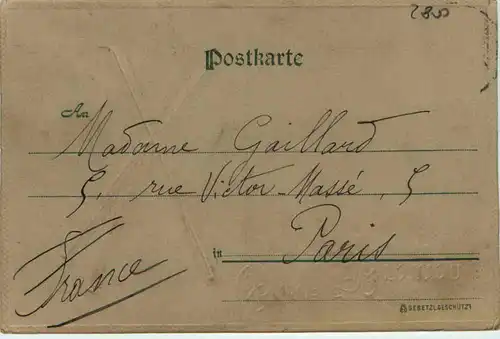 2850
Postkarte
An Madame Gaillard
5, rue Victor-Massé, 5
in Paris
France
GESETZL.GESCHÜTZT